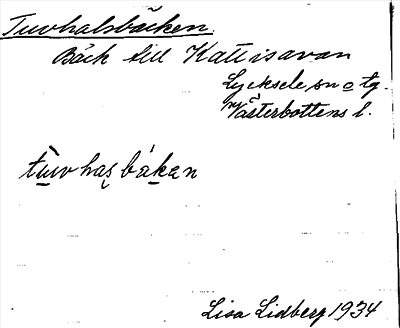 Tuvhalsbäcken.
Bäck till Kattisavan
Lycksele sn o tg.
Västerbottens l.
tùvhasbäken
Lisa Lidberg 1934